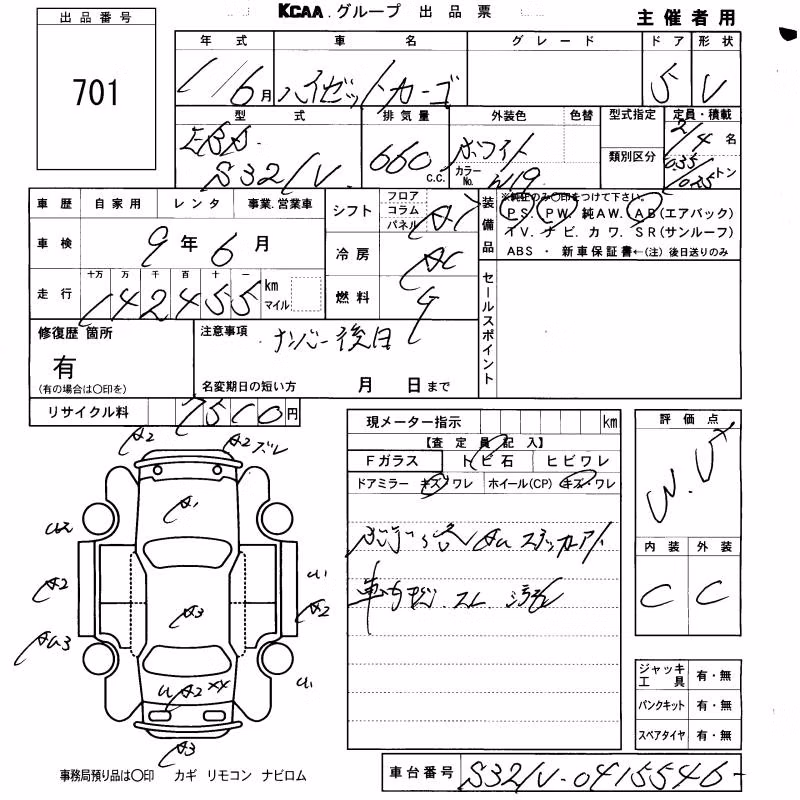 KCAA グループ 出品票
主催者用
出品番号
701
年式 車名 グレード ドア 形状
1/6月 ハイゼットカーゴ 5 V
型式 排気量 外装色 色替 型式指定 定員・積載
EBD- 660 c.c. ホワイト 2/4 名
S321V カラーNo. W19 類別区分 0.35/0.25 トン
車歴 自家用 レンタ 事業.営業車
シフト フロア コラム パネル AT
装備品
※純正のみ〇印をつけて下さい。
PS. PW. 純AW. AB(エアバック)
TV. ナビ. カワ. SR(サンルーフ)
ABS ・ 新車保証書←(注) 後日送りのみ
車検 9年6月
冷房 AC
走行 十万 万 千 百 十 一
142455 km マイル
燃料
セールスポイント
修復歴 箇所
有
(有の場合は〇印を)
注意事項 ナンバー後日
名変期日の短い方 月 日まで
リサイクル料 7510円
現メーター指示 km
【査定員記入】
Fガラス トビ石 ヒビワレ
ドアミラー キズ/ワレ ホイール(CP) キズ/ワレ
評価点
内装 外装
C C
A2
A2
A1
A2
U1
A3
A2
U1
A3
ジャッキ工具 有・無
パンクキット 有・無
スペアタイヤ 有・無
事務局預り品は〇印 カギ リモコン ナビロム
車台番号 S321V-0415546-